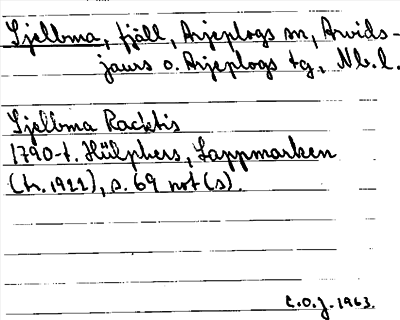 Sjelbma, fjäll, Arjeplogs sn, Arvids-
jaurs o. Arjeplogs tg., Nb. l.
Sjelbma Racktis
1790-t. Hülphers, Lappmarken
(tr. 1922), s. 69 not (s).
C.O.J. 1963.